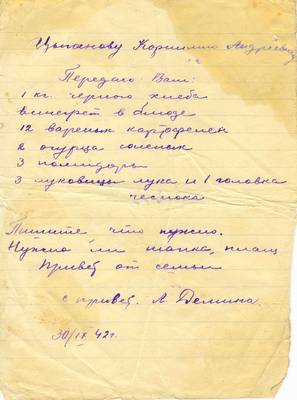 Цыганову Корнилию Андреевичу
Передаю Вам:
1 кг. черного хлеба
винегрет в блюде
12 вареных картофелен
2 огурца соленых
3 помидоры
3 луковицы лука и 1 головка
чеснока
Пишите что нужно.
Нужно ли шапка, плащ
Привет от семьи
с привет. А. Демина.
30/IX 42 г.